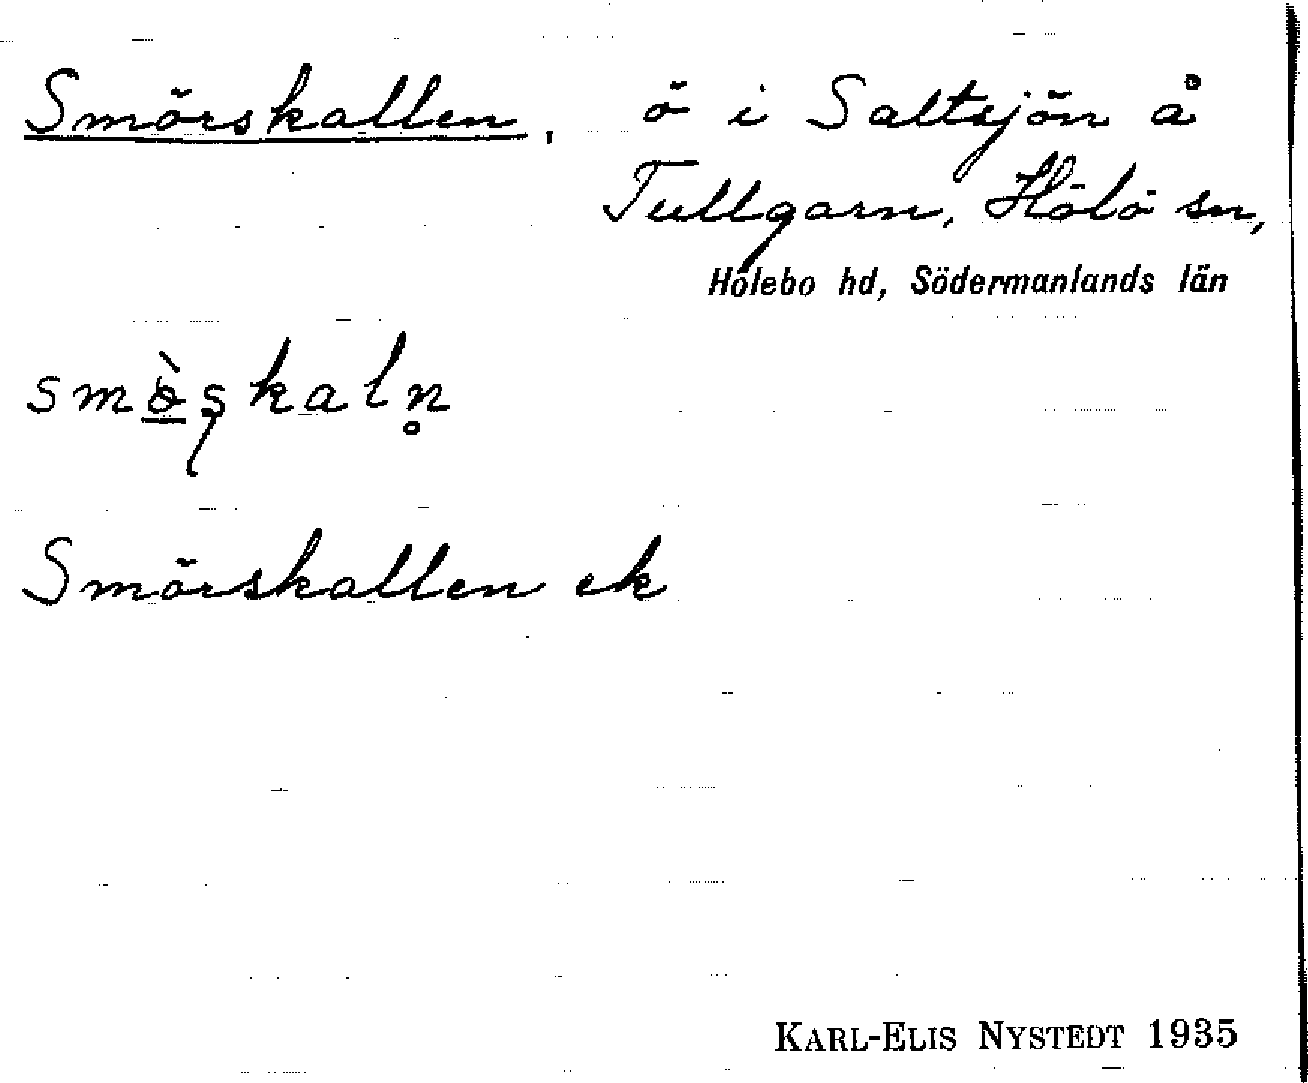 Smörskallen, ö i Saltsjön å
Tullgarn, Hölö sn,
Hölebo hd, Södermanlands län
smö̀ʂkaln̥
Smörskallen ek
KARL-ELIS NYSTEDT 1935